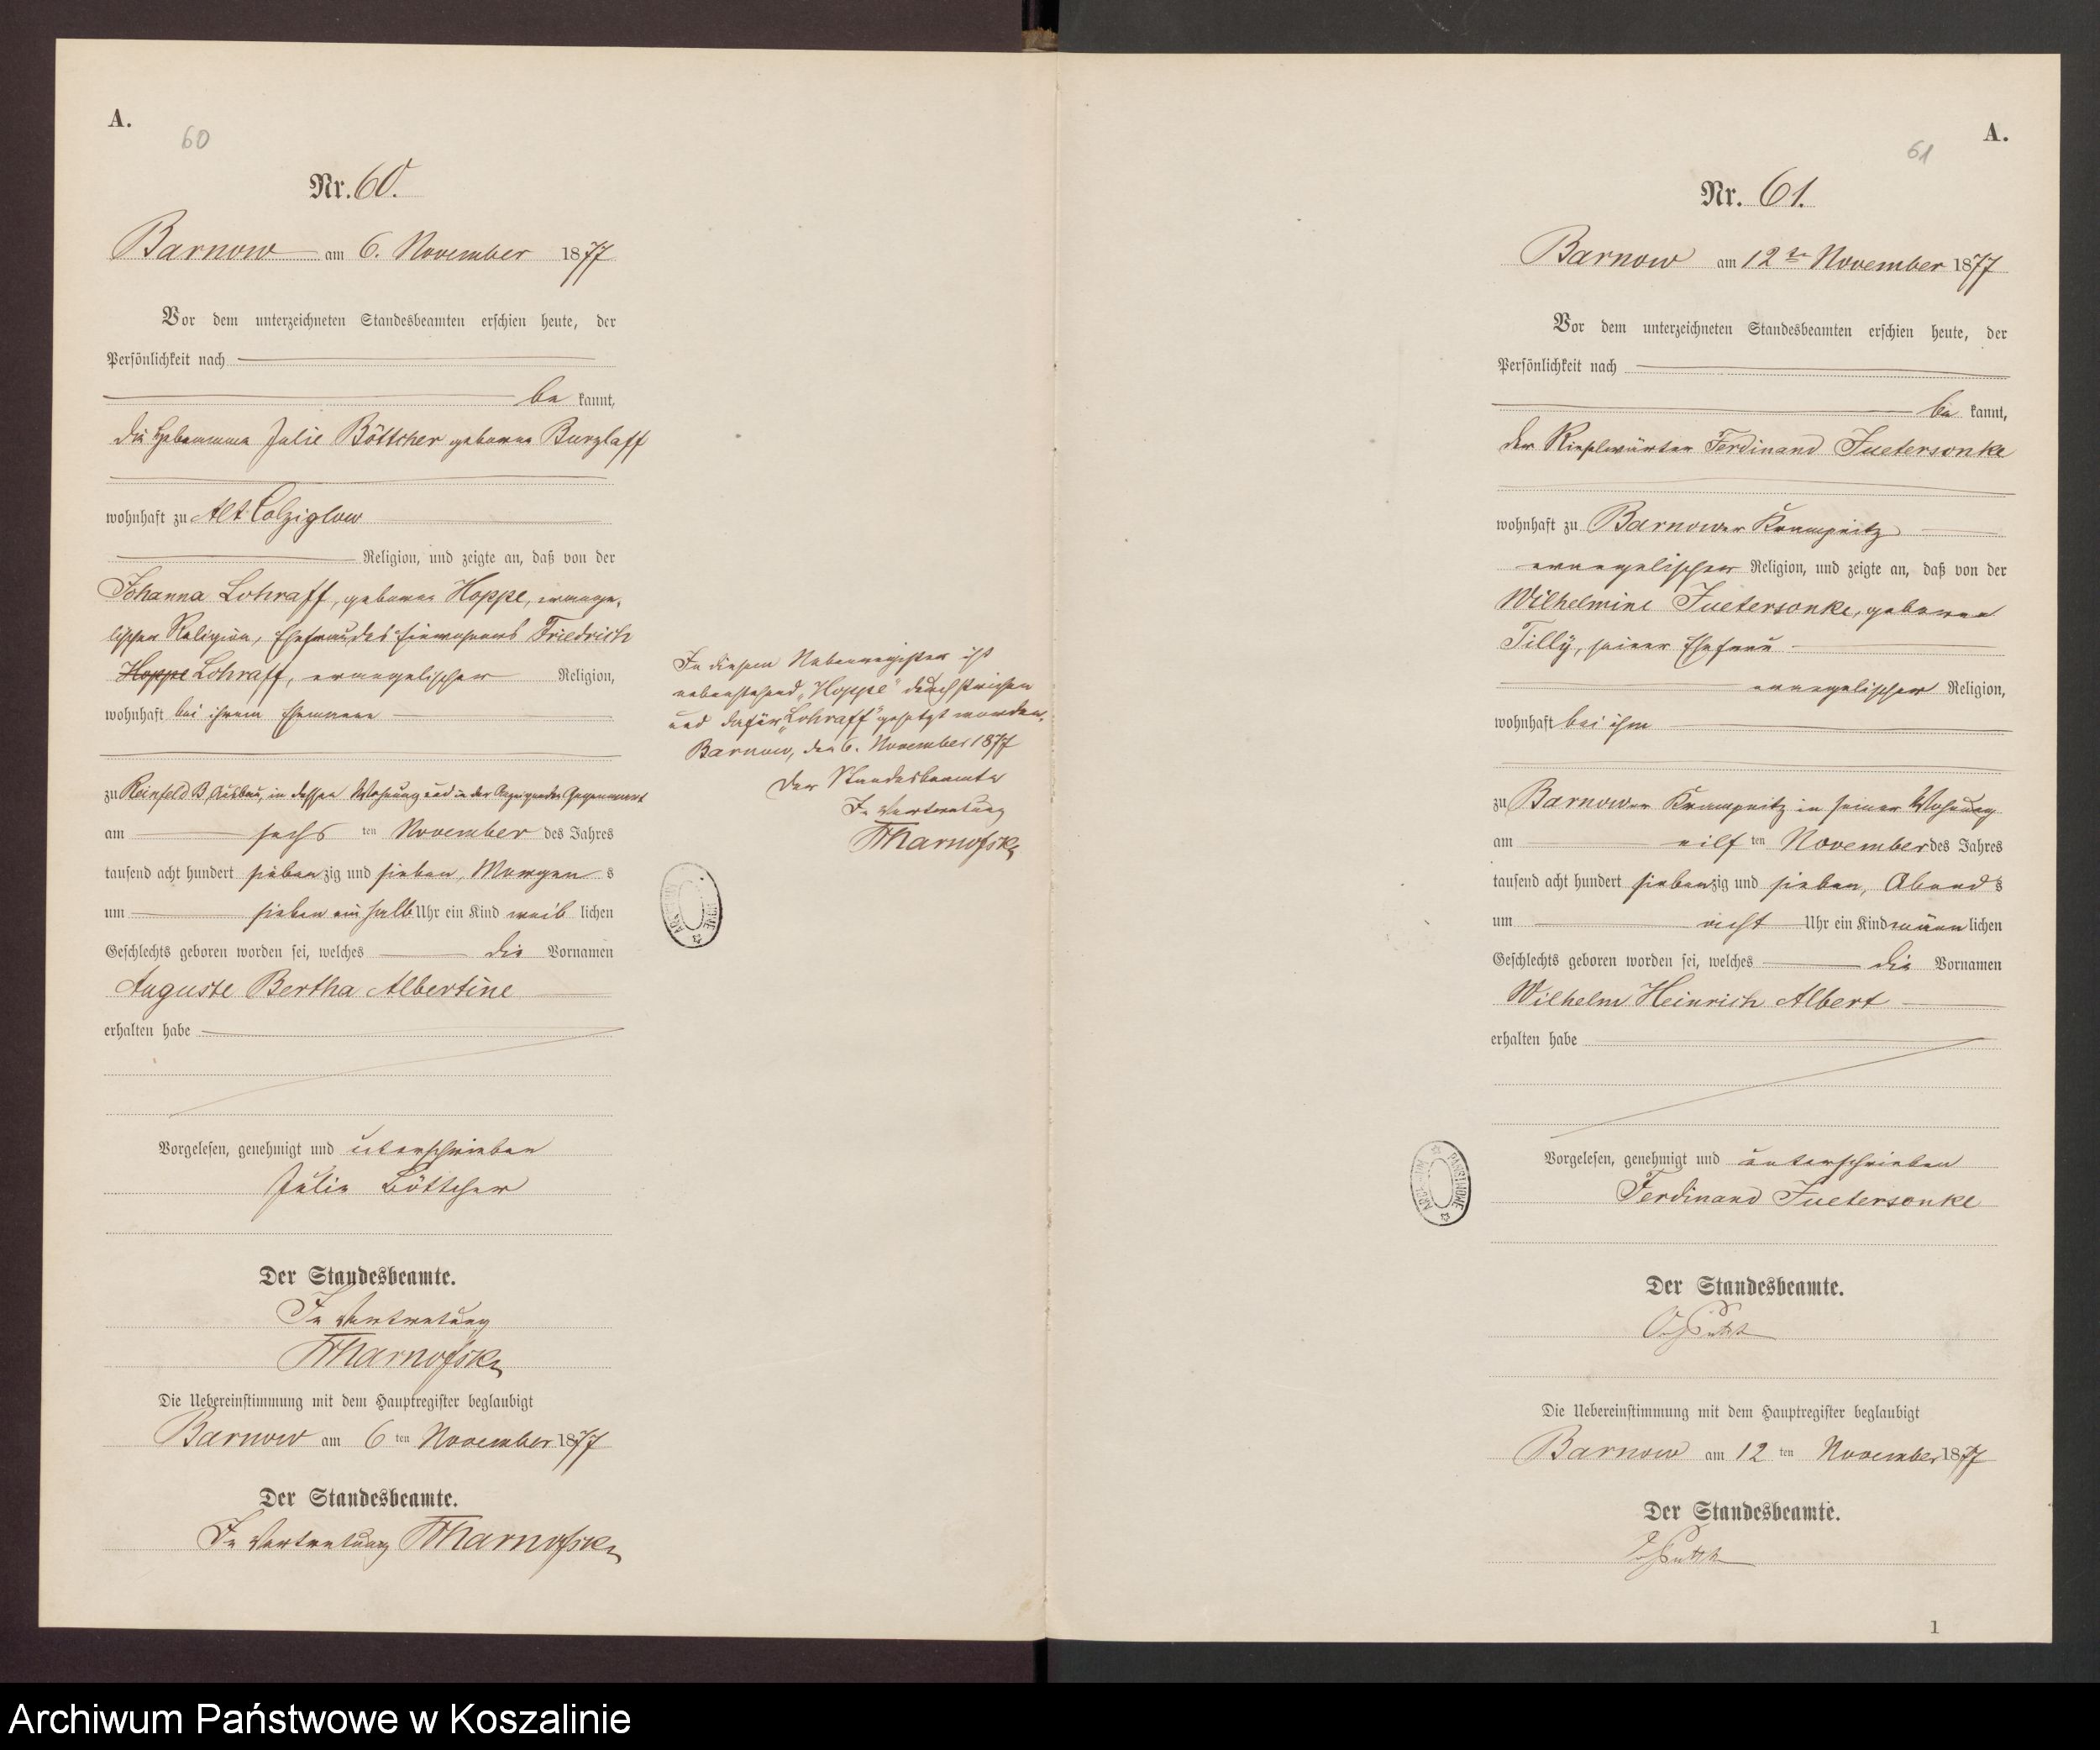 A.
60
Nr. 60.
Barnow am 6. November 1877
Vor dem unterzeichneten Standesbeamten erschien heute, der
Persönlichkeit nach
be kannt,
die Hebamme Julie Böttcher geborne Burzlaff
wohnhaft zu Alt Colziglow
Religion, und zeigte an, daß von der
Johanna Lohraff, geborne Hoppe, evange-
lischer Religion, Ehefrau des Einwohners Friedrich
Hoppe Lohraff, evangelischer Religion,
wohnhaft bei ihrem Ehemanne
zu Reinfeld B Ausbau, in dessen Wohnung und in der Anzeigenden Gegenwart
am sechs ten November des Jahres
tausend acht hundert siebenzig und sieben, Morgen s
um sieben ein halb Uhr ein Kind weib lichen
Geschlechts geboren worden sei, welches die Vornamen
Auguste Bertha Albertine
erhalten habe
Vorgelesen, genehmigt und unterschrieben
Julie Böttcher
Der Standesbeamte.
In Vertretung
Die Uebereinstimmung mit dem Hauptregister beglaubigt
Barnow am 6 ten November 1877
Der Standesbeamte.
In Vertretung
In diesem Nebenregister ist
nebenstehend „Hoppe" durchstrichen
und dafür „Lohraff" gesetzt worden.
Barnow, den 6. November 1877
Der Standesbeamte
In Vertretung
A.
61
Nr. 61.
Barnow am 12 ten November 1877
Vor dem unterzeichneten Standesbeamten erschien heute, der
Persönlichkeit nach
be kannt,
der Rieselwärter Ferdinand Fuetersonke
wohnhaft zu Barnower Krampnitz
evangelischer Religion, und zeigte an, daß von der
Wilhelmine Fuetersonke, geborne
Tilly, seiner Ehefrau
evangelischer Religion,
wohnhaft bei ihm
zu Barnower Krampnitz in seiner Wohnung
am eilf ten November des Jahres
tausend acht hundert siebenzig und sieben, Abend s
um acht Uhr ein Kind männ lichen
Geschlechts geboren worden sei, welches die Vornamen
Wilhelm Heinrich Albert
erhalten habe
Vorgelesen, genehmigt und unterschrieben
Ferdinand Fuetersonke
Der Standesbeamte.
Die Uebereinstimmung mit dem Hauptregister beglaubigt
Barnow am 12 ten November 1877
Der Standesbeamte.
1
Archiwum Państwowe w Koszalinie